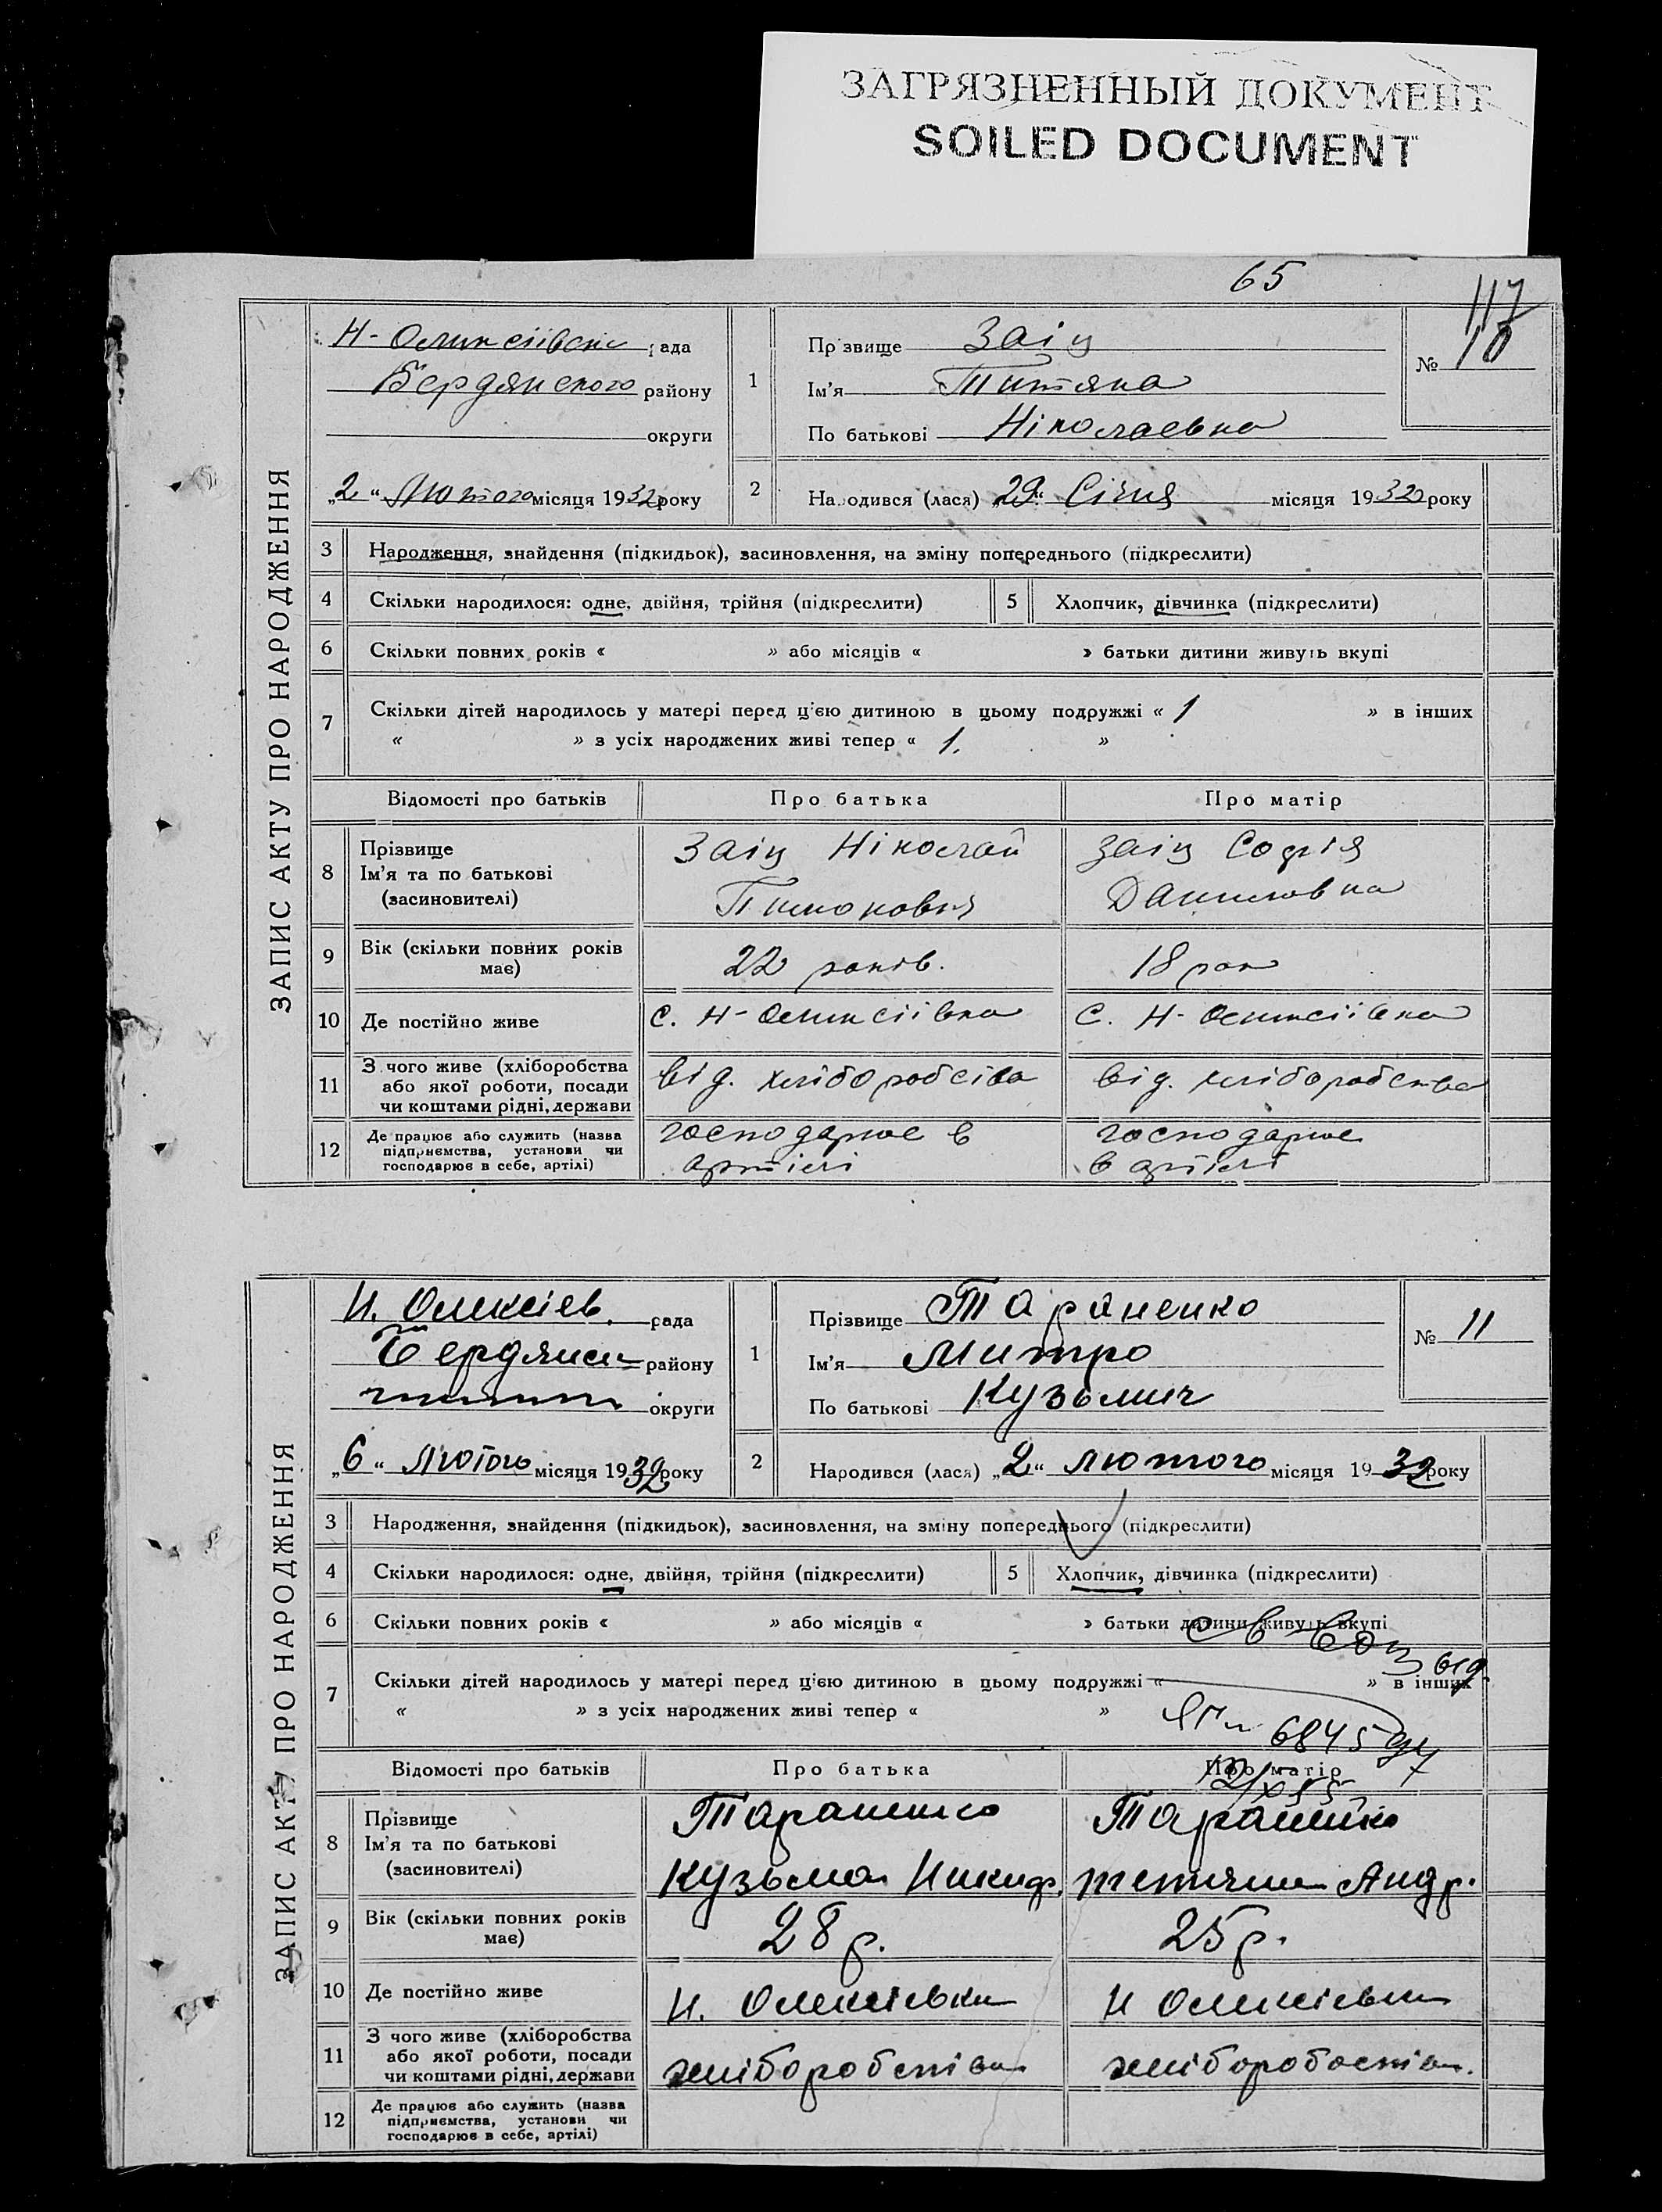 ЗАГРЯЗНЕННЫЙ ДОКУМЕНТ
SOILED DOCUMENT
65
117
ЗАПИС АКТУ ПРО НАРОДЖЕННЯ
рада
Бердянского району
округи
„2“ Лютого місяця 1932 року
1
Прізвище Заіц
Ім’я Титяна
По батькові Ніколаевна
№ 10
2
Народився (лася) „29“ Січня місяця 1932 року
3 Народження, знайдення (підкидьок), засиновлення, на зміну попереднього (підкреслити)
4 Скільки народилося: одне, двійня, трійня (підкреслити)
5 Хлопчик, дівчинка (підкреслити)
6 Скільки повних років « » або місяців « » батьки дитини живуть вкупі
7 Скільки дітей народилось у матері перед ц’єю дитиною в цьому подружжі « 1 » в інших
« » з усіх народжених живі тепер « 1. »
Відомості про батьків Про батька Про матір
8 Прізвище
Ім’я та по батькові
(засиновителі)
Заіц Ніколай
Заіц Софія
Даниловна
9 Вік (скільки повних років
має)
22 років.
18 рок
10 Де постійно живе
с. Н-Олексіївка
с. Н-Олексіївка
11 З чого живе (хліборобства
або якої роботи, посади
чи коштами рідні, держави
від. хліборобства
від. хліборобства
12 Де працює або служить (назва
підприємства, установи чи
господарює в себе, артілі)
господарює в
артілі
господарює
в артілі
ЗАПИС АКТУ ПРО НАРОДЖЕННЯ
Н. Олексіев. рада
Бердянськ району
округи
„6“ Лютого місяця 1932 року
1
Прізвище Тараненко
Ім’я Митро
По батькові Кузьмич
№ 11
2
Народився (лася) „2“ лютого місяця 1932 року
3 Народження, знайдення (підкидьок), засиновлення, на зміну попереднього (підкреслити)
4 Скільки народилося: одне, двійня, трійня (підкреслити)
5 Хлопчик, дівчинка (підкреслити)
6 Скільки повних років « » або місяців « » батьки дитини живуть вкупі
7 Скільки дітей народилось у матері перед ц’єю дитиною в цьому подружжі « » в інших
« » з усіх народжених живі тепер « »
6845
Відомості про батьків Про батька Про матір
8 Прізвище
Ім’я та по батькові
(засиновителі)
Тараненко
Кузьма Никиф.
Тараненко
Тетяна Андр.
9 Вік (скільки повних років
має)
28 р.
25 р.
10 Де постійно живе
Н. Олексіевка
Н Олексіевка
11 З чого живе (хліборобства
або якої роботи, посади
чи коштами рідні, держави
хліборобства
12 Де працює або служить (назва
підприємства, установи чи
господарює в себе, артілі)